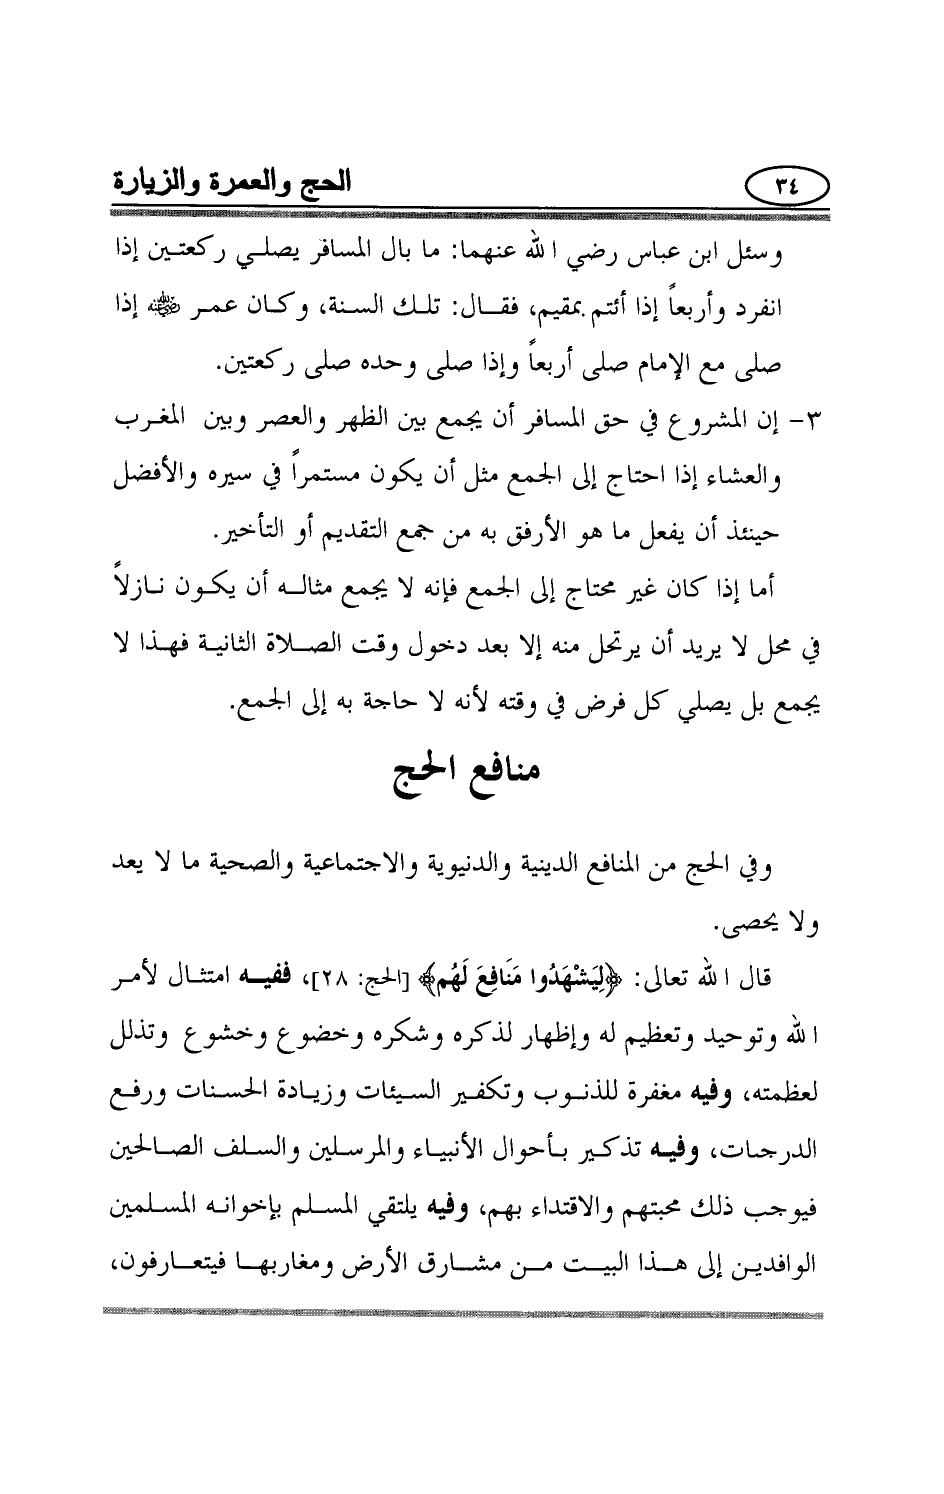 ٣٤ الحج والعمرة والزيارة
وسئل ابن عباس رضي الله عنهما: ما بال المسافر يصلي ركعتين إذا
انفرد وأربعاً إذا أئتم بمقيم، فقال: تلك السنة، وكان عمر رضي الله عنه إذا
صلى مع الإمام صلى أربعاً وإذا صلى وحده صلى ركعتين.
٣- إن المشروع في حق المسافر أن يجمع بين الظهر والعصر وبين المغرب
والعشاء إذا احتاج إلى الجمع مثل أن يكون مستمراً في سيره والأفضل
حينئذ أن يفعل ما هو الأرفق به من جمع التقديم أو التأخير.
أما إذا كان غير محتاج إلى الجمع فإنه لا يجمع مثاله أن يكون نازلاً
في محل لا يريد أن يرتحل منه إلا بعد دخول وقت الصلاة الثانية فهذا لا
يجمع بل يصلي كل فرض في وقته لأنه لا حاجة به إلى الجمع.
منافع الحج
وفي الحج من المنافع الدينية والدنيوية والاجتماعية والصحية ما لا يعد
ولا يحصى.
قال الله تعالى: ﴿لِيَشْهَدُوا مَنَافِعَ لَهُم﴾ [الحج: ٢٨]، ففيه امتثال لأمر
الله وتوحيد وتعظيم له وإظهار لذكره وشكره وخضوع وخشوع وتذلل
لعظمته، وفيه مغفرة للذنوب وتكفير السيئات وزيادة الحسنات ورفع
الدرجات، وفيه تذكير بأحوال الأنبياء والمرسلين والسلف الصالحين
فيوجب ذلك محبتهم والاقتداء بهم، وفيه يلتقي المسلم بإخوانه المسلمين
الوافدين إلى هذا البيت من مشارق الأرض ومغاربها فيتعارفون،